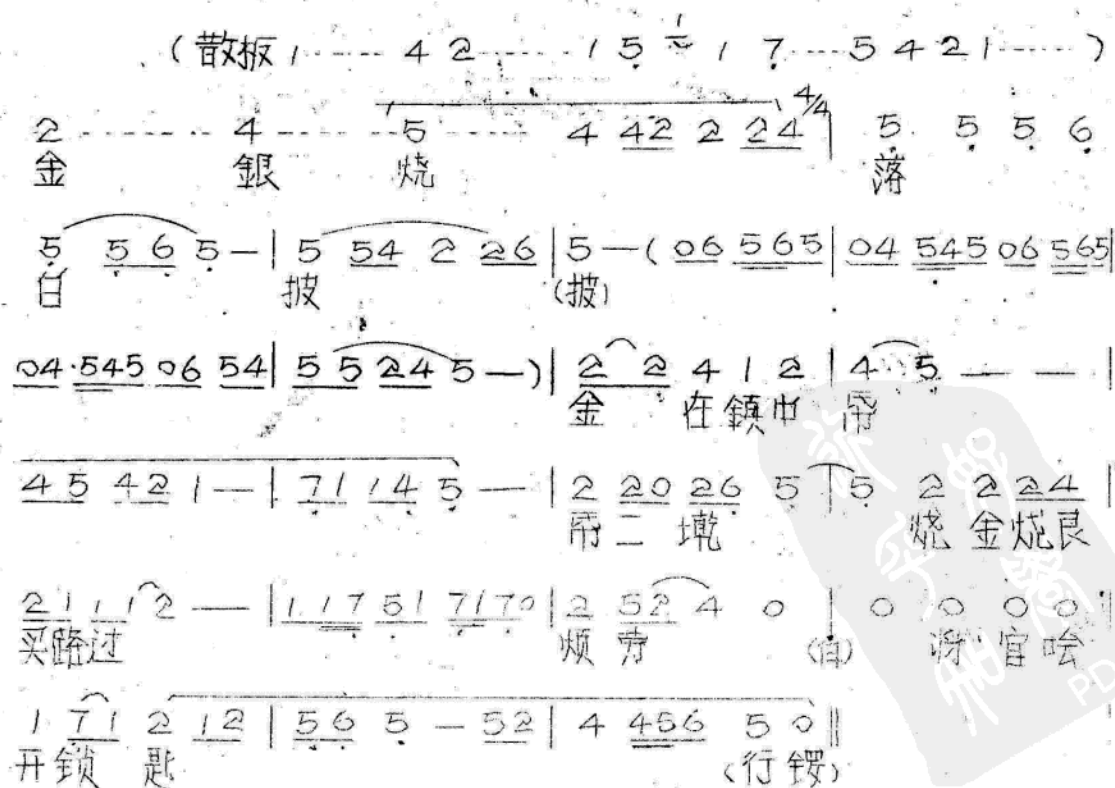 (散板 1 ······ 4 2 ······ 1 5 1 1 7 ···· 5 4 2 1 ······ )
2 ······ 4 ······ 5 ······ 4 42 2 24 4/4 | 5 5 5 6
金 銀 烧 落
5 5 6 5 — | 5 54 2 26 | 5 — ( 06 565 | 04 545 06 565 |
白 披 (披)
04 545 06 54 | 5 5 24 5 — ) | 2 2 4 1 2 | 4 5 — — |
金 在鎮巾 吊
4 5 42 1 — | 71 14 5 — | 2 20 26 5 | 5 2 2 24 |
吊 二 墘 烧 金烧艮
21 11 2 — | 1 17 51 7170 | 2 52 4 0 | 0 0 0 0 |
买路过 烦劳 (白) 官哙
1 71 2 12 | 56 5 — 52 | 4 456 5 0 ||
开锁 匙 (行锣)